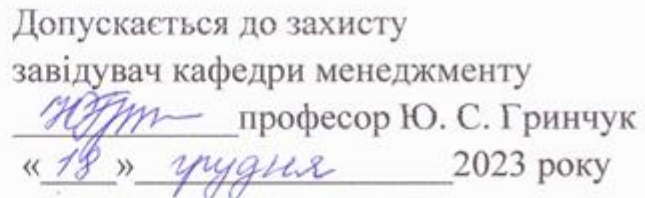 Допускається до захисту
завідувач кафедри менеджменту
професор Ю. С. Гринчук
«18» грудня 2023 року